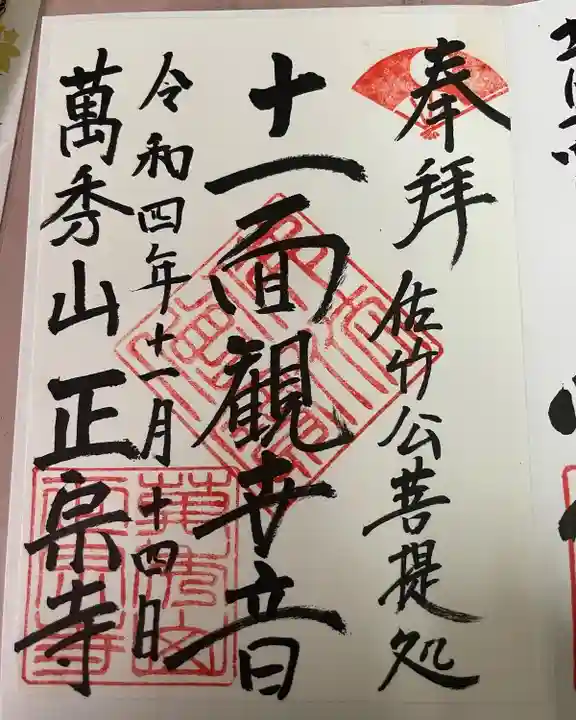 奉拝
佐竹公菩提処
十一面観世音
令和四年十一月十四日
萬秀山 正宗寺